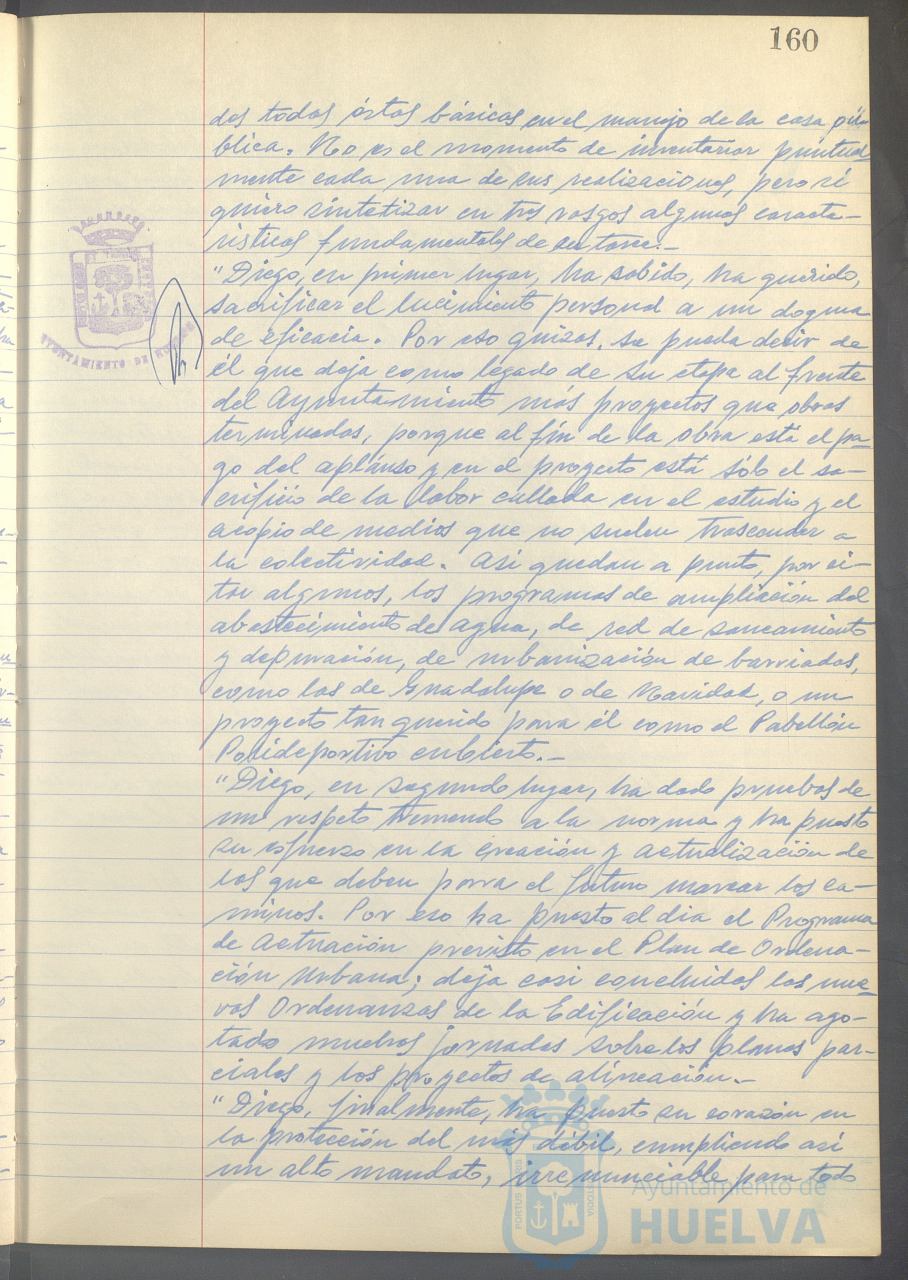 160
dos todos éstos básicos en el manejo de la cosa pú-
blica. No es el momento de inventariar puntual
mente cada una de sus realizaciones, pero sí
quiero sintetizar en tres rasgos algunas caracte-
rísticas fundamentales de su tarea.-
"Diego, en primer lugar, ha sabido, ha querido,
sacrificar el lucimiento personal a un dogma
de eficacia. Por eso quizás, se pueda decir de
él que deja como legado de su etapa al frente
del Ayuntamiento más proyectos que obras
terminadas, porque al fin de la obra está el pa-
go del aplauso y en el proyecto está sólo el sa-
crificio de la labor callada en el estudio y el
acopio de medios que no suelen trascender a
la colectividad. Así quedan a punto, por ci-
tar algunos, los programas de ampliación del
abastecimiento de agua, de red de saneamiento
y depuración, de urbanización de barriadas,
como las de Guadalupe o de Navidad, o un
proyecto tan querido para él como el Pabellón
Polideportivo cubierto.-
"Diego, en segundo lugar, ha dado pruebas de
un respeto tremendo a la norma y ha puesto
su esfuerzo en la creación y actualización de
las que deben para el futuro marcar los ca-
minos. Por eso ha puesto al día el Programa
de Actuación previsto en el Plan de Ordena-
ción Urbana; deja casi concluidas las nue-
vas Ordenanzas de la Edificación y ha ago-
tado muchas jornadas sobre los planes par-
ciales y los proyectos de alineación.-
"Diego, finalmente, ha puesto su corazón en
la protección del más débil, cumpliendo así
un alto mandato, irrenunciable para todo
AYUNTAMIENTO DE HUELVA
PORTUS
CUSTODIA
Ayuntamiento de
HUELVA